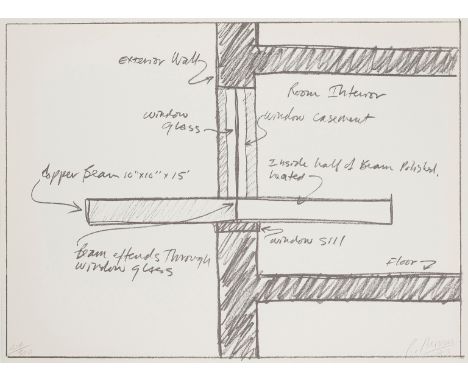 Exterior Wall
Room Interior
window
glass
window casement
Inside half of Beam Polished,
heated
Copper Beam 10"x10"x15'
window sill
Beam extends Through
window glass
Floor